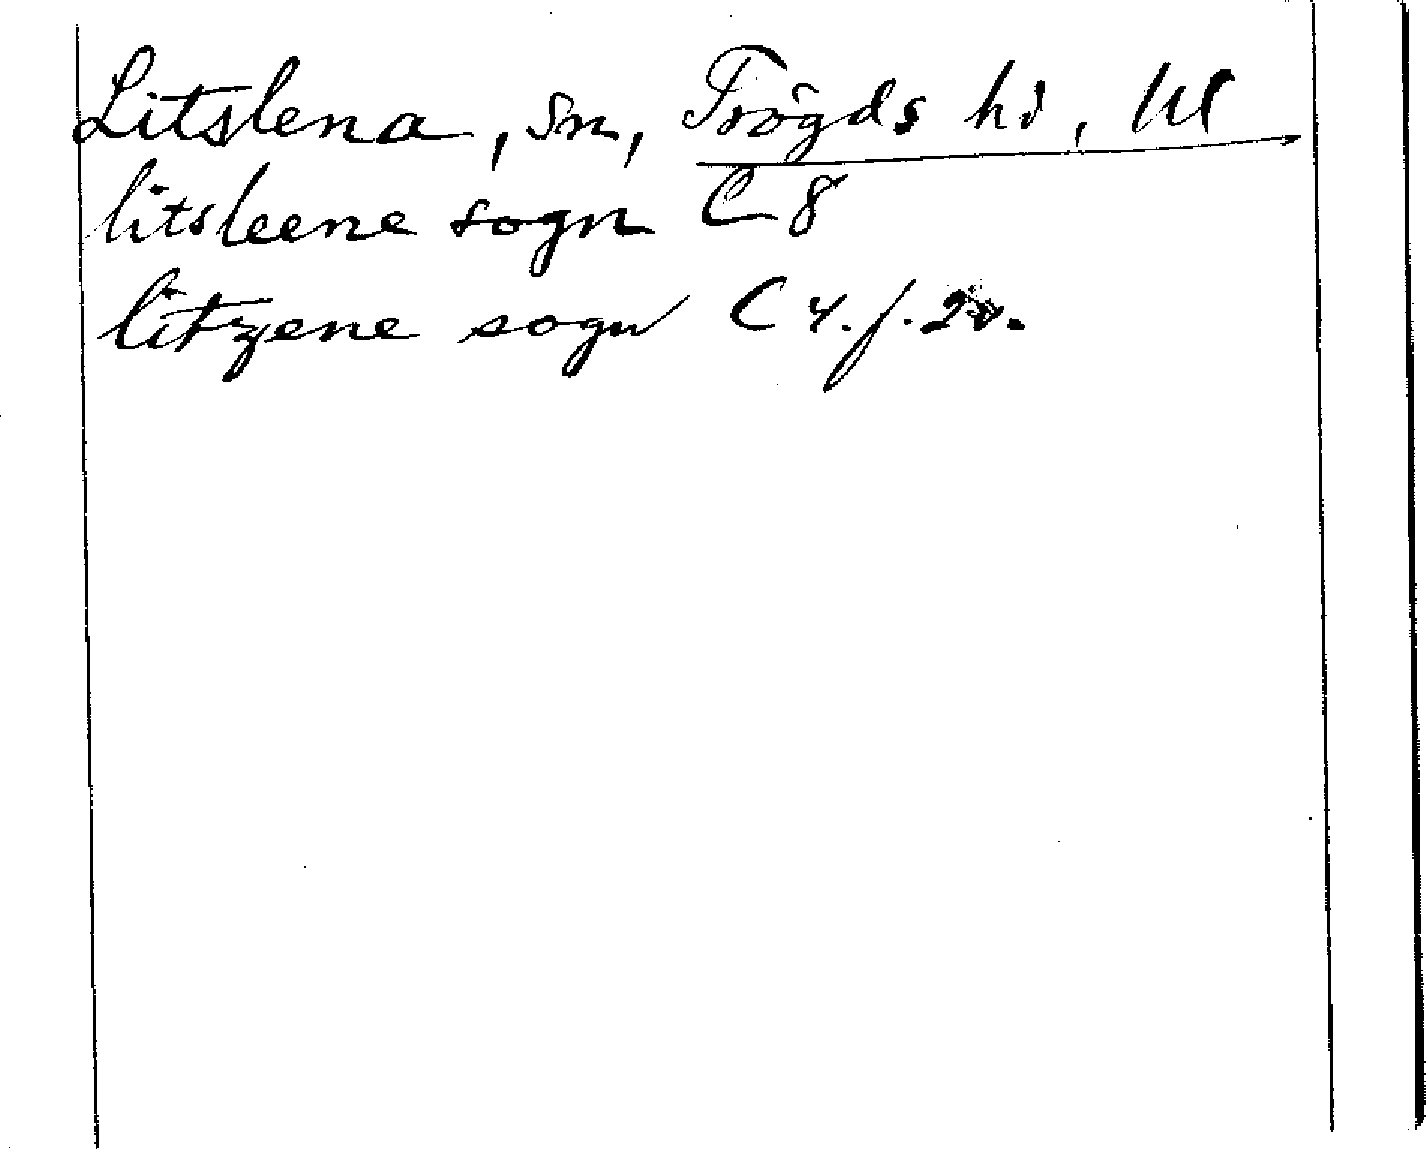 Litslena, sn, Trögds hd, Ul
litsleene sogn C 8
litzene sogn C 4. f. 2v.